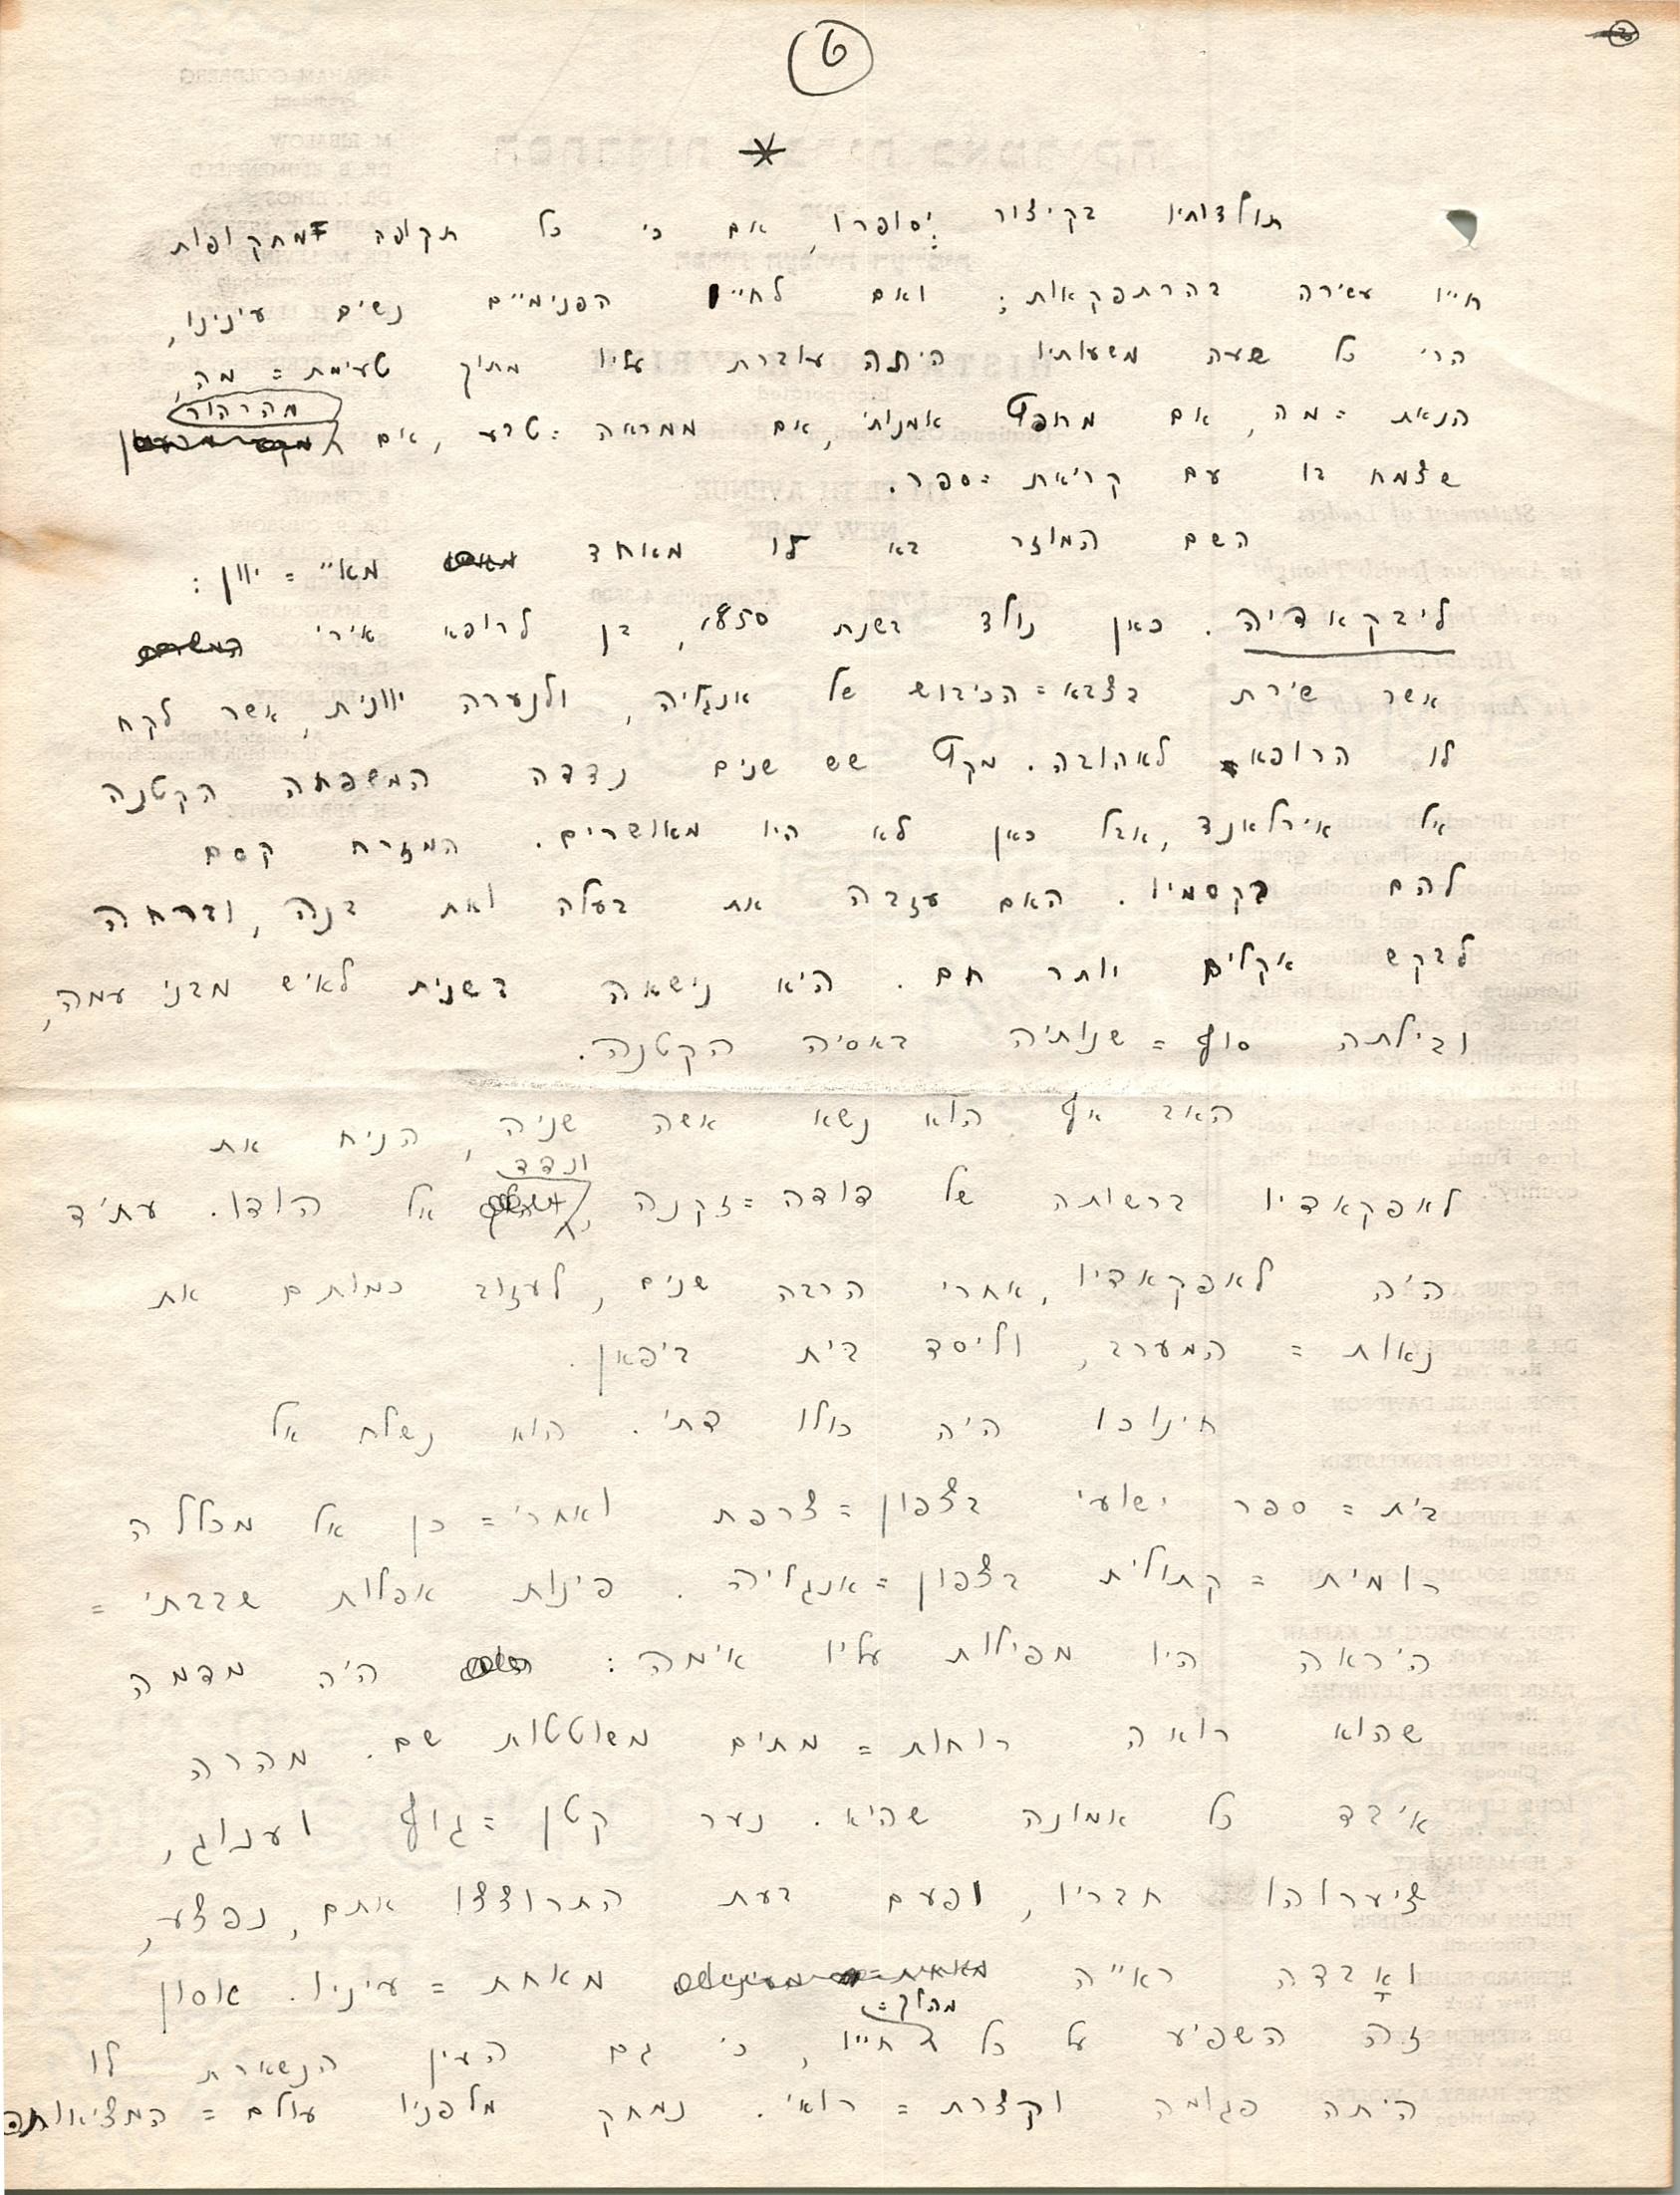 6
*
תולדותיו בקיצור יסופרו, אם כי כל תקופה מתקופות
חייו עשירה בהרתפקאות; ואם לחייו הפנימיים נשים עינינו,
הרי כל שעה משעותיו היתה עוברת עליו מתוך טעימת=מה,
הנאת=מה, אם מחפץ אמנותי, אם ממראה=טבע, אם מהרהור
שצמח בו עם קריאת=ספר.
השם המוזר בא לו מאוחד מאיי=יוון:
ליבקאדיה. כאן נולד בשנת 1850, בן לרופא אירי
אשר שירת בצבא=הכיבוש של אנגליה, ולנערה יוונית, אשר לקח
לו הרופא לאהובה. מקץ שש שנים נדדה המשפחה הקטנה
אל אירלאנד, אבל כאן לא היו מאושרים. המזרח קסם
להם בקסמיו. האם עזבה את בעלה ואת בנה, וברחה
לבקש אקלים יותר חם. היא נישאה בשנית לאיש מבני עמה,
ובילתה סוף=שנותיה באסיה הקטנה.
האב אף הוא נשא אשה שניה, הניח את
לאפקאדיו ברשותה של דודה=זקנה, ונדד אל הודו. עתיד
היה לאפקאדיו, אחרי הרבה שנים, לעזוב כמותם את
נאות=המערב, וליסד בית ביפאן.
חינוכו היה כולו דתי. הוא נשלח אל
בית=ספר ישועי בצפון=צרפת ואחרי=כן אל מכללה
רומית=קתולית בצפון=אנגליה. פינות אפלות שבבתי=
היראה היו מפילות עליו אימה: היה מדמה
שהוא רואה רוחות=מתים משוטטות שם. מהרה
איבד כל אמונה שהיא. נער קטן=גוף וענוג,
ציערוהו חבריו, ופעם בעת התרוצצו אתם, נפצע,
ואָבדה ראייה מאחת=עיניו. אסון
זה השפיע על כל מהלך=חייו, כי גם העין הנשארת לו
היתה פגומה וקצרת=רואי. נמחק מלפניו עולם=המציאות